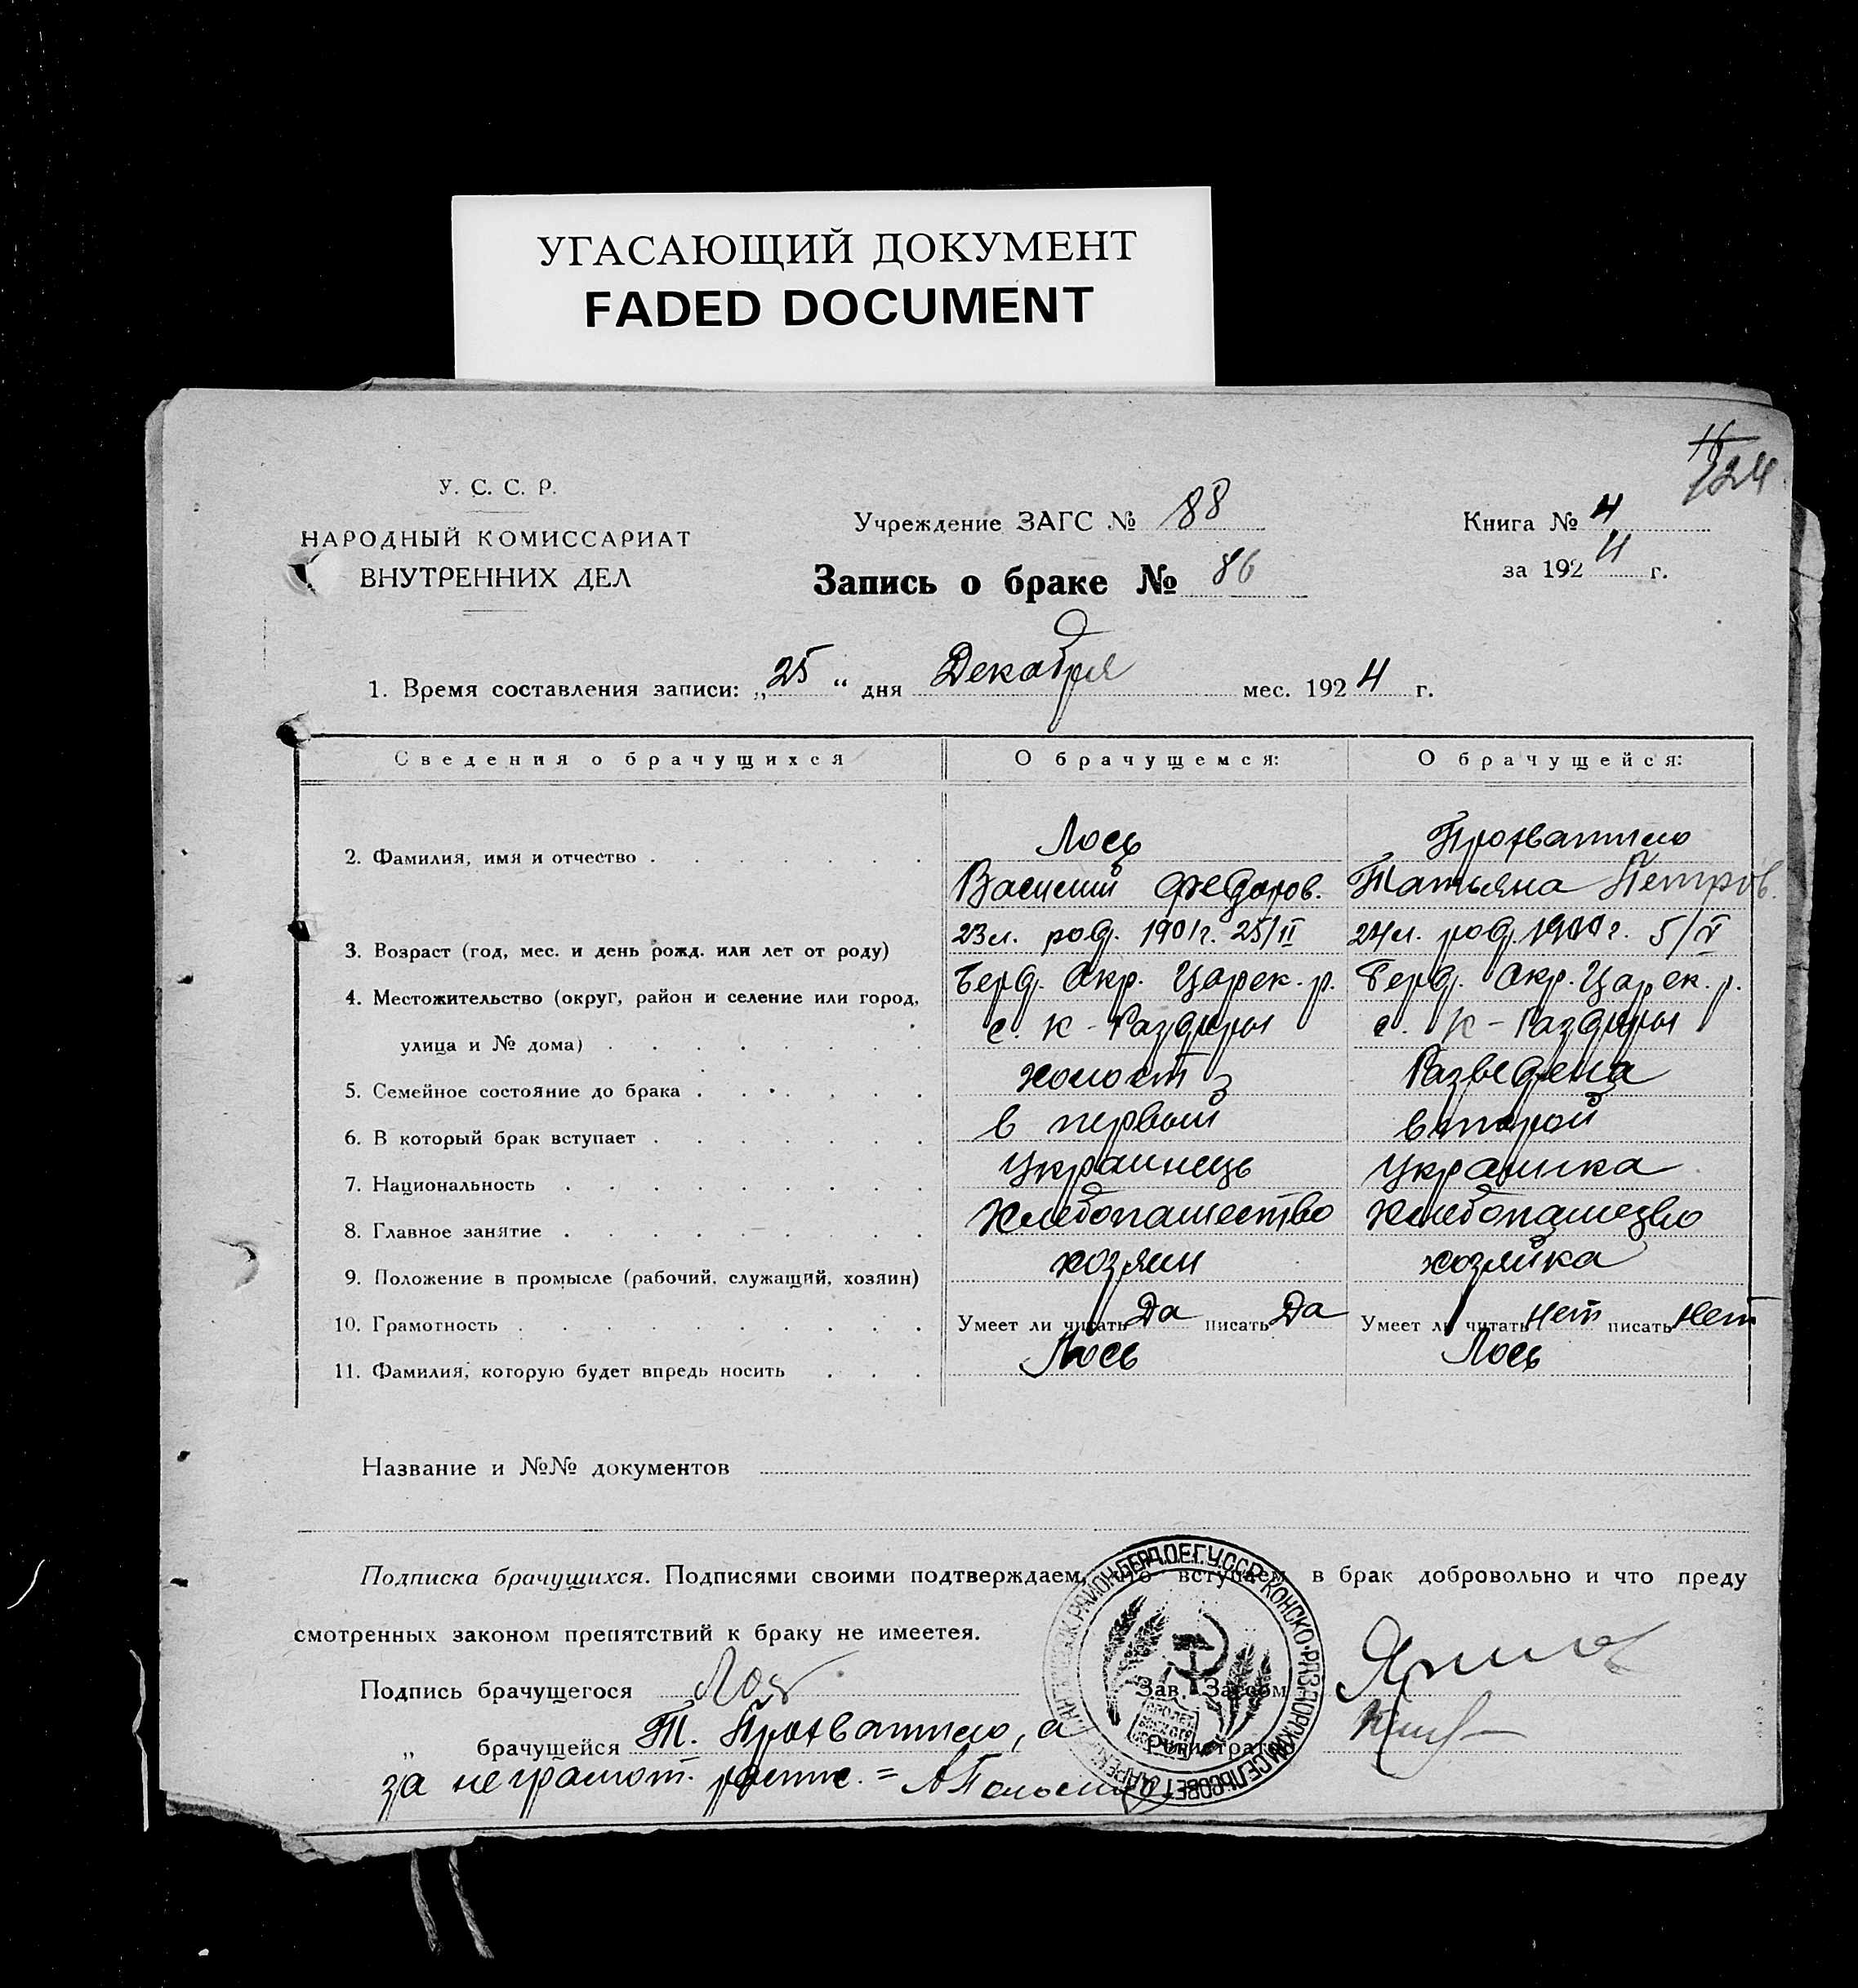 УГАСАЮЩИЙ ДОКУМЕНТ
FADED DOCUMENT
124
У. С. С. Р.
НАРОДНЫЙ КОМИССАРИАТ
ВНУТРЕННИХ ДЕЛ
Учреждение ЗАГС № 88
Запись о браке № 86
Книга № 4
за 1924 г.
1. Время составления записи: „25“ дня Декабря мес. 1924 г.
Сведения о брачущихся О брачущемся: О брачущейся:
2. Фамилия, имя и отчество Лось
Василий Федоров. Татьяна Петров.
3. Возраст (год, мес. и день рожд. или лет от роду) 23 л. род. 1901 г. 25/II 24 л. род. 1900 г. 5/V
4. Местожительство (округ, район и селение или город, Берд. Окр. Царек. р. Берд. Окр. Царек. р.
улица и № дома) с. К-Раздоры с. К-Раздоры
5. Семейное состояние до брака Холост Разведена
6. В который брак вступает в первый второй
7. Национальность Украинець Украинка
8. Главное занятие Хлебопашество Хлебопашество
9. Положение в промысле (рабочий, служащий, хозяин) хозяин хозяйка
10. Грамотность Умеет ли читать Да писать Да Умеет ли читать Нет писать Нет
11. Фамилия, которую будет впредь носить Лось Лось
Название и №№ документов
Подписка брачущихся. Подписями своими подтверждаем, что вступаем в брак добровольно и что преду
смотренных законом препятствий к браку не имеетея.
Подпись брачущегося Лось
Зав. Загсом
„ брачущейся Т. , а
Регистратор
за неграмот. роспис. =
РАЙОН БЕРД.О.ЕГ.У.ССР КОНСКО-РАЗДОРСКИЙ СЕЛЬСОВЕТ ЦАРЕК